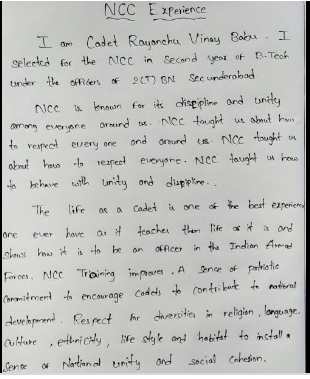 NCC Experience
I am Cadet Rayanchu Vinay Babu. I
selected for the NCC in Second year of B-Tech
under the officers of 2(T) BN Secunderabad
NCC is known for its discipline and unity
among everyone around us. NCC taught us about how
to respect every one and around us. NCC taught us
about how to respect everyone. NCC taught us how
to behave with unity and discipline..
The life as a cadet is one of the best experience
one ever have as it teaches them life as it is and
shows how it is to be an officer in the Indian Armed
Forces. NCC Training improves. A sense of patriotic
commitment to encourage cadets to contribute to national
development. Respect for diversities in religion, language,
Culture, ethnicity, life style and habitat to install a
Sense of National unity and social cohesion.